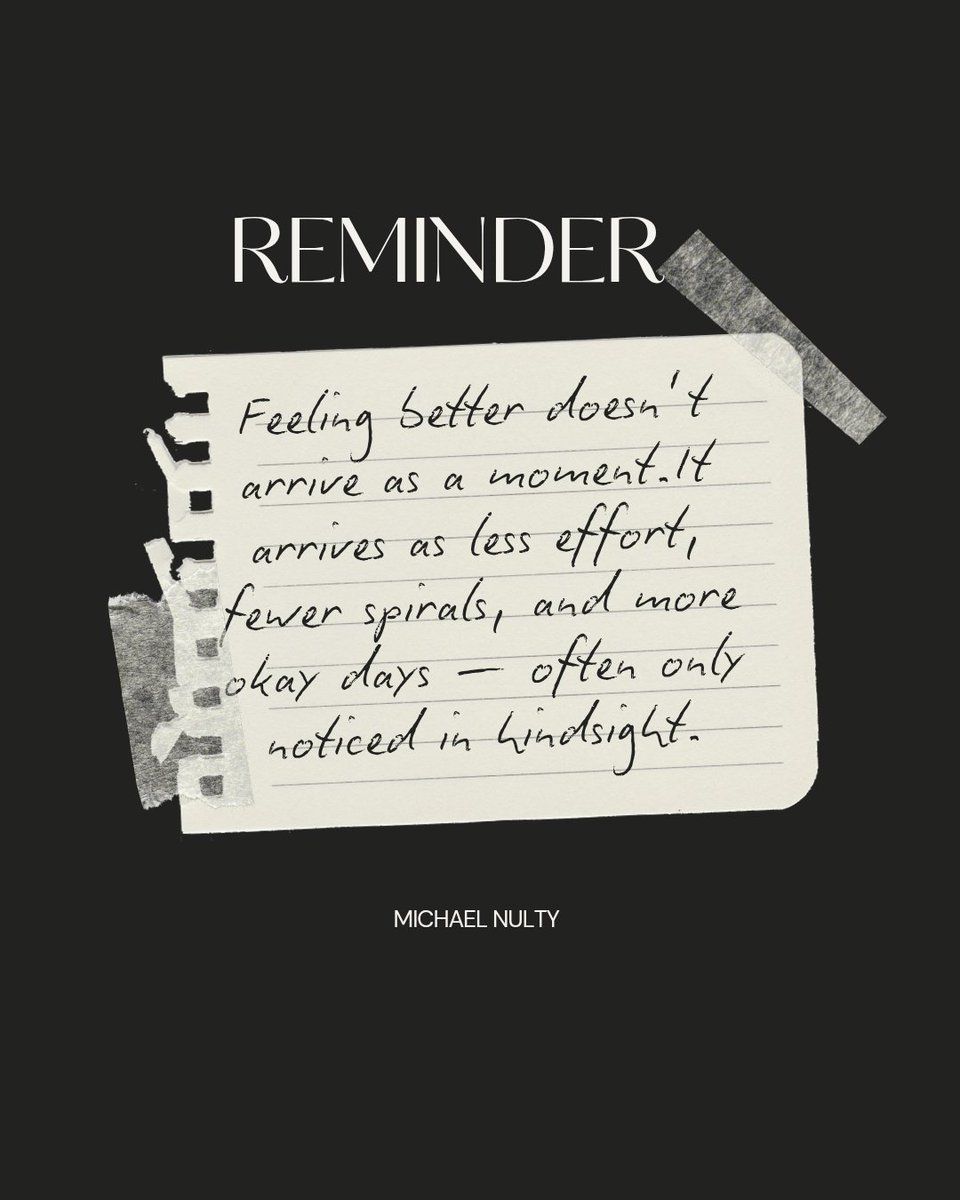 REMINDER
Feeling better doesn't
arrive as a moment.It
arrives as less effort,
fewer spirals, and more
okay days — often only
noticed in hindsight.
MICHAEL NULTY